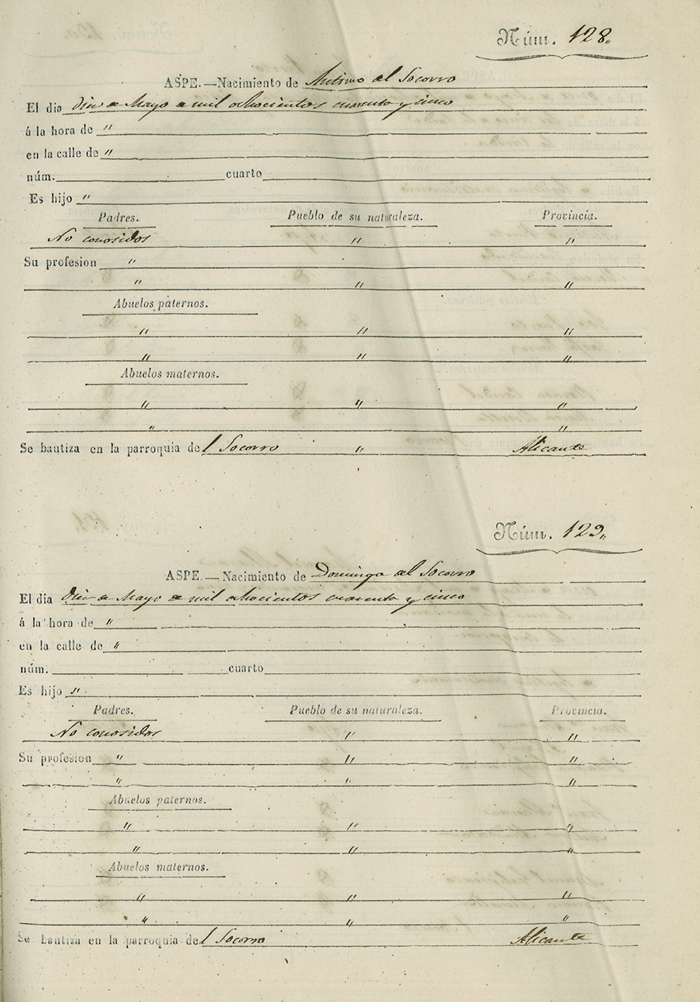 Núm. 128.
ASPE.—Nacimiento de Antimo del Socorro
El dia diez de Mayo de mil ochocientos cuarenta y cinco
á la hora de "
en la calle de "
núm. cuarto
Es hijo "
Padres. Pueblo de su naturaleza. Provincia.
No conosidos " "
Su profesion "
" " "
Abuelos paternos.
" " "
" " "
Abuelos maternos.
" " "
" "
Se bautiza en la parroquia del Socorro " Alicante
Núm. 129.
ASPE.—Nacimiento de Domingo del Socorro
El dia diez de Mayo de mil ochocientos cuarenta y cinco
á la hora de "
en la calle de "
núm. cuarto
Es hijo "
Padres. Pueblo de su naturaleza. Provincia.
No conosidos " "
Su profesion " " "
" " "
Abuelos paternos.
" " "
" " "
Abuelos maternos.
" " "
" " "
Se bautiza en la parroquia del Socorro Alicante